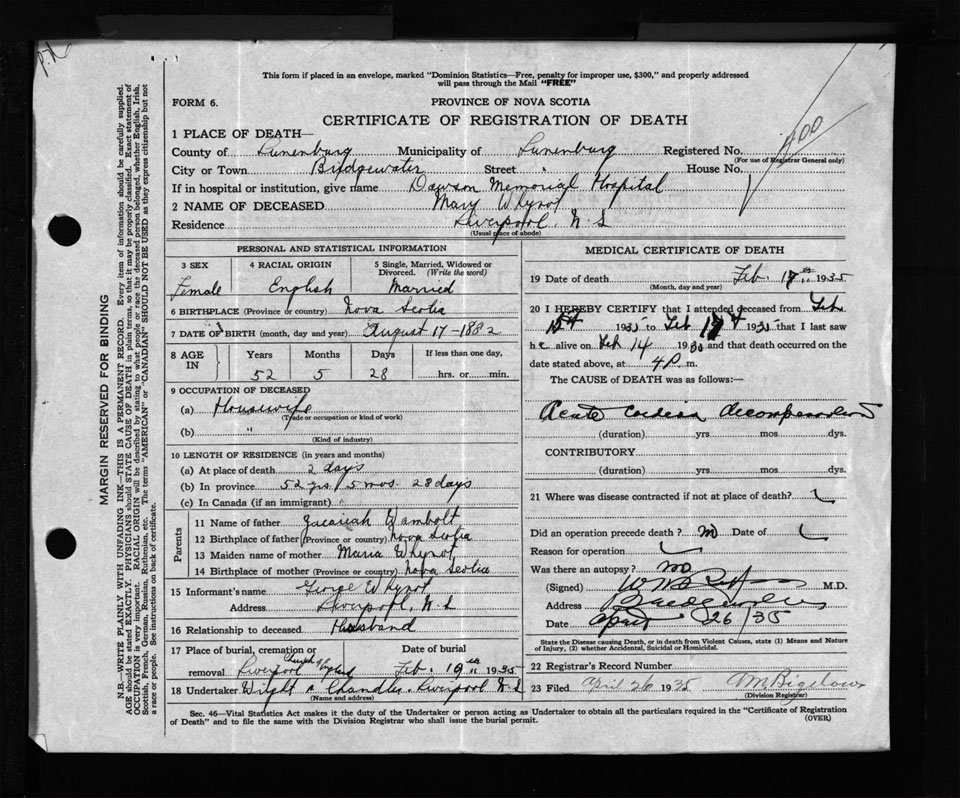 This form if placed in an envelope, marked "Dominion Statistics—Free, penalty for improper use, $300," and properly addressed
will pass through the Mail "FREE"
FORM 6.
PROVINCE OF NOVA SCOTIA
CERTIFICATE OF REGISTRATION OF DEATH
400
1 PLACE OF DEATH—
County of Lunenburg Municipality of Lunenburg Registered No.
(For use of Registrar General only)
City or Town Bridgewater Street House No.
If in hospital or institution, give name Dawson Memorial Hospital
2 NAME OF DECEASED Mary Whynot
Residence Liverpool, N.S
(Usual place of abode)
PERSONAL AND STATISTICAL INFORMATION
3 SEX 4 RACIAL ORIGIN 5 Single, Married, Widowed or Divorced. (Write the word)
Female English Married
6 BIRTHPLACE (Province or country) Nova Scotia
7 DATE OF BIRTH (month, day and year) August 17-1882
8 AGE IN Years Months Days If less than one day,
52 5 28 hrs. or min.
9 OCCUPATION OF DECEASED
(a) Housewife
(Trade or occupation or kind of work)
(b) "
(Kind of industry)
10 LENGTH OF RESIDENCE (in years and months)
(a) At place of death 2 days
(b) In province 52 yrs. 5 mos. 28 days
(c) In Canada (if an immigrant)
Parents
11 Name of father Zacariah Wambolt
12 Birthplace of father (Province or country) Nova Scotia
13 Maiden name of mother Maria Whynot
14 Birthplace of mother (Province or country) Nova Scotia
15 Informant's name George Whynot
Address Liverpool, N.S
16 Relationship to deceased Husband
17 Place of burial, cremation or Date of burial
removal Liverpool Church of England Feb. 19th 1935
18 Undertaker Wright & Chandler. Liverpool N S
(Name and address)
MEDICAL CERTIFICATE OF DEATH
19 Date of death Feb. 17th 1935
(Month, day and year)
20 I HEREBY CERTIFY that I attended deceased from Feb
15th 1935 to Feb 17th 1935 that I last saw
he alive on Feb 14 1935 and that death occurred on the
date stated above, at 4 P. m.
The CAUSE of DEATH was as follows:—
Acute cardiac decompensation
(duration) yrs. mos. dys.
CONTRIBUTORY
(duration) yrs. mos. dys.
21 Where was disease contracted if not at place of death?
Did an operation precede death? no Date of
Reason for operation
Was there an autopsy? no
(Signed) M.D.
Address Bridgewater
Date April 26/35
State the Disease causing Death, or in death from Violent Causes, state (1) Means and Nature
of Injury, (2) whether Accidental, Suicidal or Homicidal.
22 Registrar's Record Number
23 Filed April 26 1935 Bigelow
(Division Registrar)
Sec. 46—Vital Statistics Act makes it the duty of the Undertaker or person acting as Undertaker to obtain all the particulars required in the "Certificate of Registration
of Death" and to file the same with the Division Registrar who shall issue the burial permit.
(OVER)
MARGIN RESERVED FOR BINDING
N.B.—WRITE PLAINLY WITH UNFADING INK—THIS IS A PERMANENT RECORD. Every item of information should be carefully supplied.
AGE should be stated EXACTLY. PHYSICIANS should STATE CAUSE OF DEATH in plain terms, so that it may be properly classified. Exact statement of
OCCUPATION is very important. RACIAL ORIGIN will be described by stating to what people or race the deceased person belonged, whether English, Irish,
Scottish, French, German, Russian, Ruthenian, etc. The terms "AMERICAN" or "CANADIAN" SHOULD NOT BE USED as they express citizenship but not
a race or people. See instructions on back of certificate.